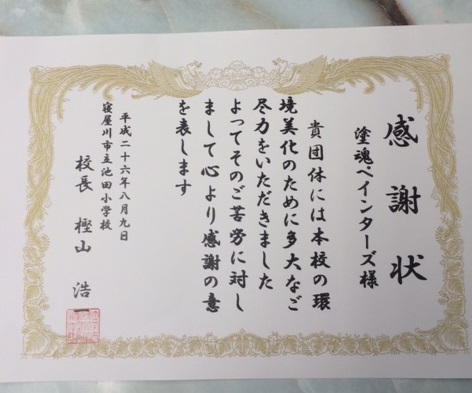 感謝状
塗魂ペインターズ様
貴団体には本校の環
境美化のために多大なご
尽力をいただきました
よってそのご苦労に対し
まして心より感謝の意
を表します
平成二十六年八月九日
寝屋川市立池田小学校
校長 樫山 浩一